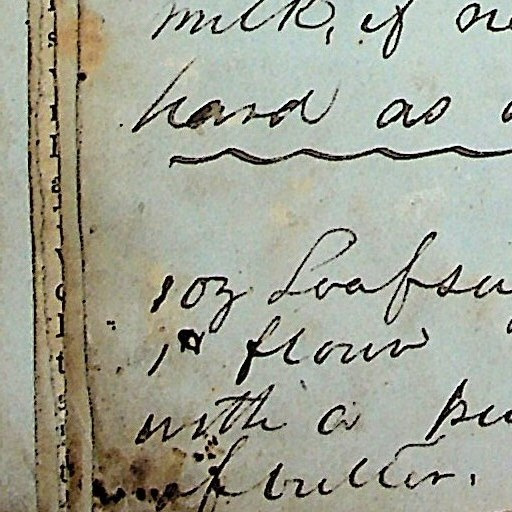 milk, if ne
hard as a
1 oz Loafsu
1 " flour
with a pi
of butter.